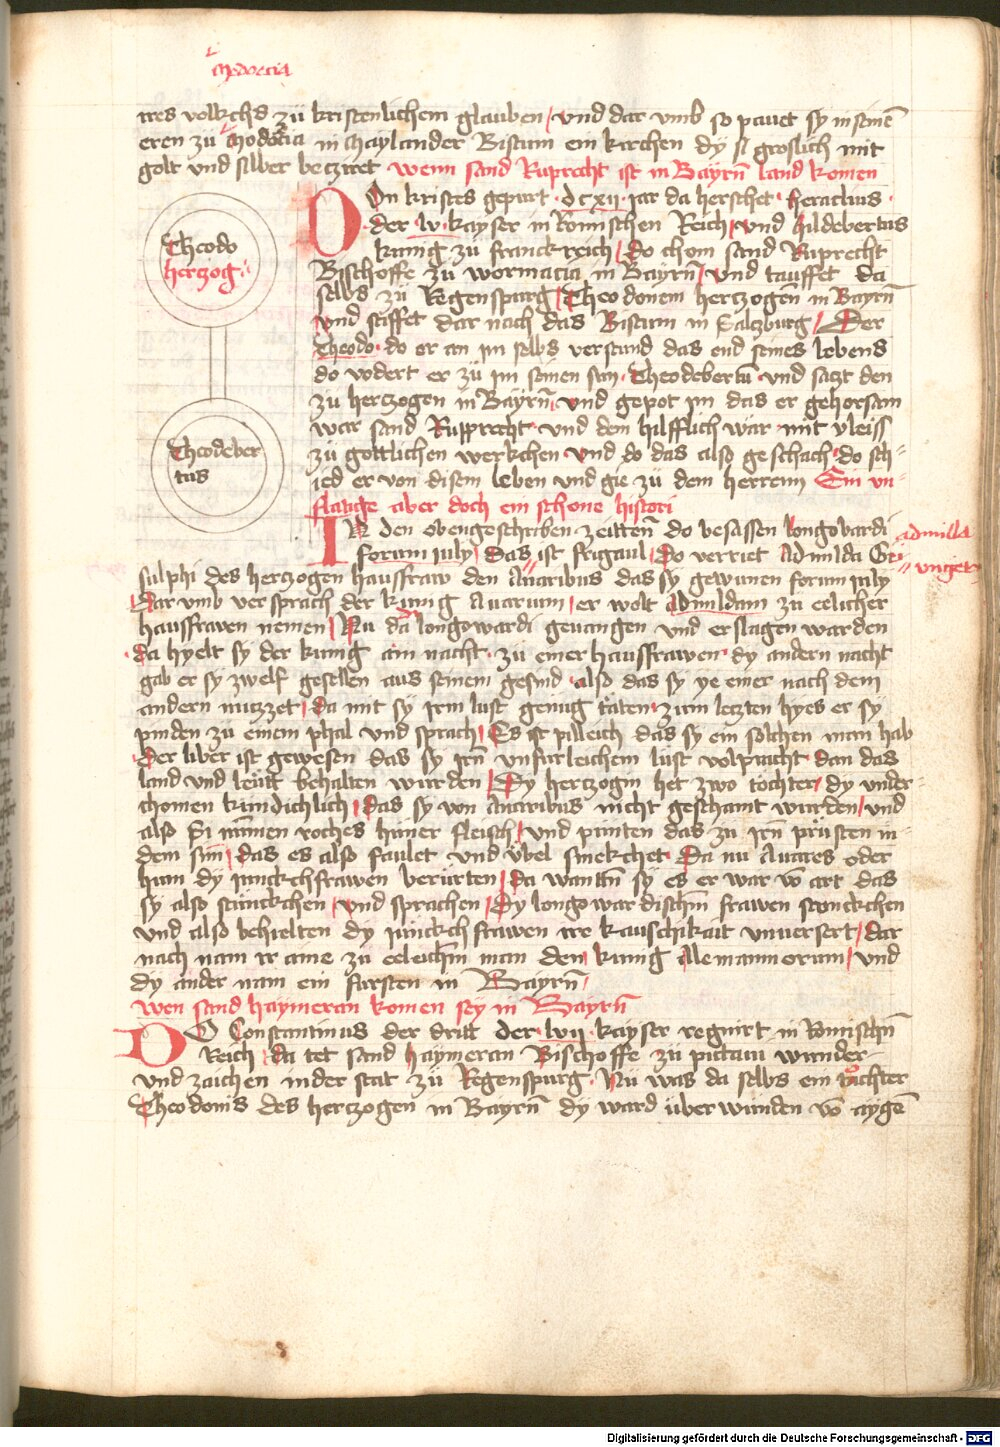 Modoecia
ires volkchs zü kristenlichem glauben / und dar umb so pauet sy in seinē
eren zü Modoecia in Maylander Bistum ein kirchen dy si groslich mit
golt und silber becziret wenn sand Ruprecht ist in Bayrn̄ land komen
Theodo
hertzog
Theodeber
tus
Von kristes gepurt · dcxij · jar da herschet · heraclius ·
der · lv · kayser in Romischen Reich / und hildebertus
kunig zu franckreich / do chom sand Ruprecht
Bischoffe zu wormacia in Bayrn̄ / und tauffet da
selbs zü Regenspurg / Theodonem hertzogen in Bayrn̄
und stiffet dar nach das Bistum in Salczburg / Der
Theodo · do er an im selbs verstund das end seines lebens
do vodert er zü im seinen sun · Theodebertū · und saczt den
zü hertzogen in Bayrn̄ · und gepot im das er gehorsam
wär sand Rupprecht · und dem hilfflich wär mit vleiss
zü gottlichen werkchen · und do das also geschach · do sch=
ied er von disem leben und gie zü dem herrenn Ein un=
flätige aber doch ein schone histori
IN den obengeschriben zeittenn̄ do besassen longobardi
forum july / das ist frigaul / Do verriet Admilda Gi=
sulphi des hertzogen haussfraw den Avaribus das sy gewunen forum july
Admilla
Dar umb versprach der kunig Avarum / er wolt Admildam zu eelicher
haussfrawen nemen / Nu da longowardi gevangen und erslagen warden
da hyelt sy der kunig ain nacht · zu einer haussfrawen · dy andern nacht
gab er sy zwelf gesellen aus seinem gesind · also das sy ye einer nach dem
andern nuczzet / da mit sy irm lust genug täten · zum letzten hyes er sy
pinden zu einem phal und sprach / Es ist pilleich das sy ein solchen man hab
Der liber ist gewesen das sy irn̄ unfurleichem lust volpracht dan das
land und leütt behalten wurden / Dy hertzogin het zwo töchter / dy under=
chomen kundichlich / das sy von Avaribus nicht geschant wurden / und
also Si namen roches hüner fleisch / und punten das zu irn̄ prüsten in=
dem sin / das es also faulet und übel smekchet · Da nu Avares oder
hun dy junckchfrawen berürten / da wantn̄ sy es er war vō art das
sy also stünckchen / und sprachen / Dy longowardischn̄ frawen stunckchen
und also behielten dy junckchfrawen ire kauschikait unversert / dar
nach nam ir aine zü eeleichm̄ man den / kunig Alemannorum / und
dy ander nam ein fursten in Bayrn̄ /
wen sand haymeran komen sey in Bayrn̄
DO Constantinus der dritt der · lvij · kayser regnirt in Romischn̄
Reich / da tet sand haymeran Bischoffe zü pictavi wunder
und zaichen in der stat zü Regenspurg · Nü was da selbs ein tochter
Theodonis des hertzogen in Bayrn̄ dy ward überwunden vō aygē
Digitalisierung gefördert durch die Deutsche Forschungsgemeinschaft - DFG